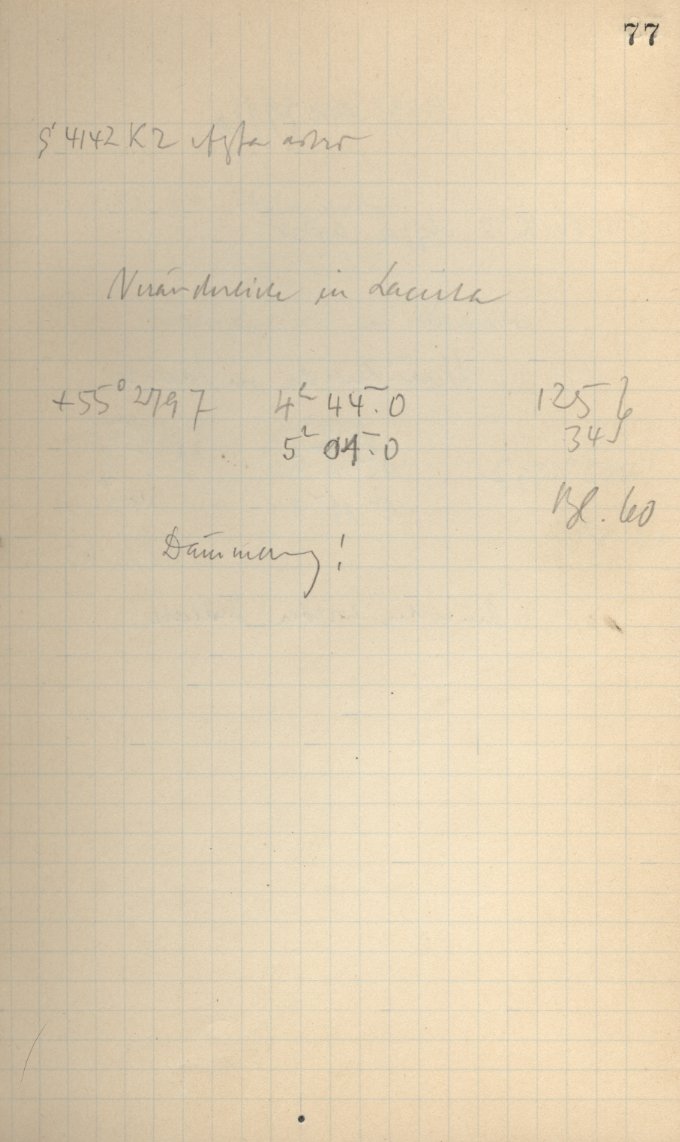 77
S 4142 K2 Agfa astro
Veränderliche in Lacerta
+55° 2797 4h 44m.0 125
5h 04m.0 34
Bl. 60
Dämmerung!